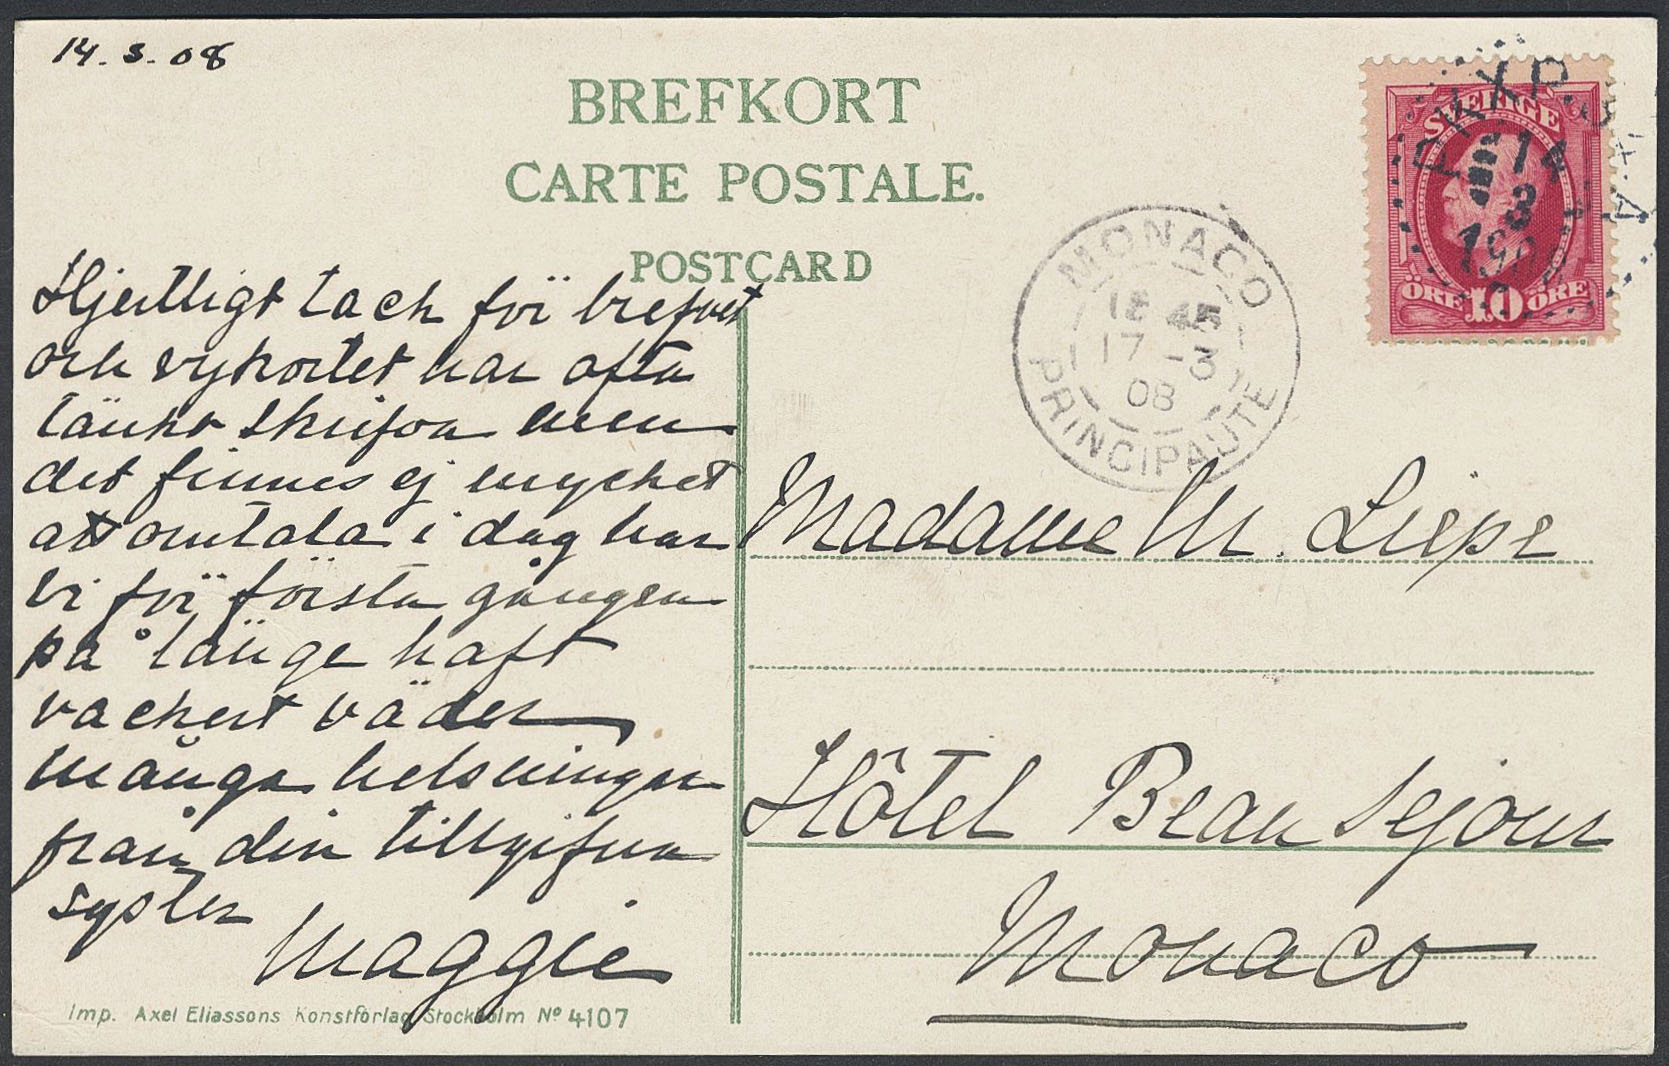 14. 3. 08
BREFKORT
CARTE POSTALE.
POSTCARD
SVERIGE
ÖRE 10 ÖRE
PKXP
14
3
MONACO
PRINCIPAUTE
45
17 -3
08
Hjertligt tack för brefvet
och vykortet har ofta
tänkt skrifva men
det finnes ej mycket
att omtala i dag har
vi för första gången
på länge haft
vackert väder
många helsningar
från din tillgifna
syster
Maggie
Madame M. Liepe
Hôtel Beau Sejour
Monaco
Imp. Axel Eliassons Konstförlag Stockholm No 4107